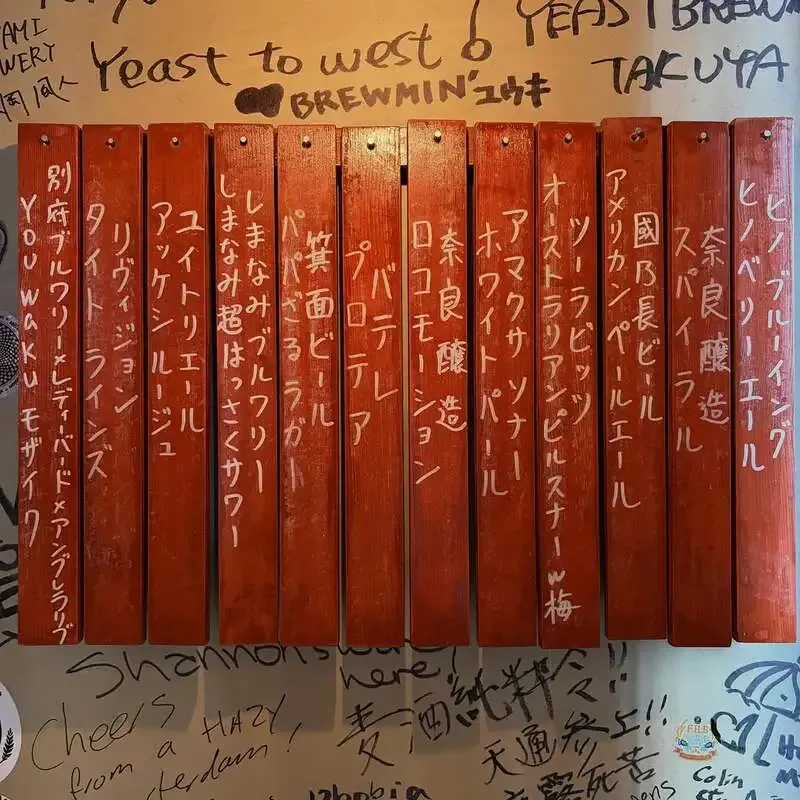 Yeast to west
YEAST BREWM
TAKUYA
AMI
WERY
BREWMIN'ユウキ
ヒノブルーイング
ヒノベリーエール
奈良醸造
スパイラル
國乃長ビール
アメリカンペールエール
ツーラビッツ
オーストラリアンピルスナーw梅
アマクサソナー
ホワイトパール
奈良醸造
ロコモーション
バテレ
プロテア
箕面ビール
パパざるラガー
しまなみブルワリー
しまなみ超はっさくサワー
ユイトリエール
アッケシルージュ
リヴィジョン
タイトラインズ
別府ブルワリー×レディーバード×アンブレラリブ
You waku モザイク
Shannon's were
here!
Cheers
from a HAZY
麦酒純粋令!!
天通
死苦
Colin